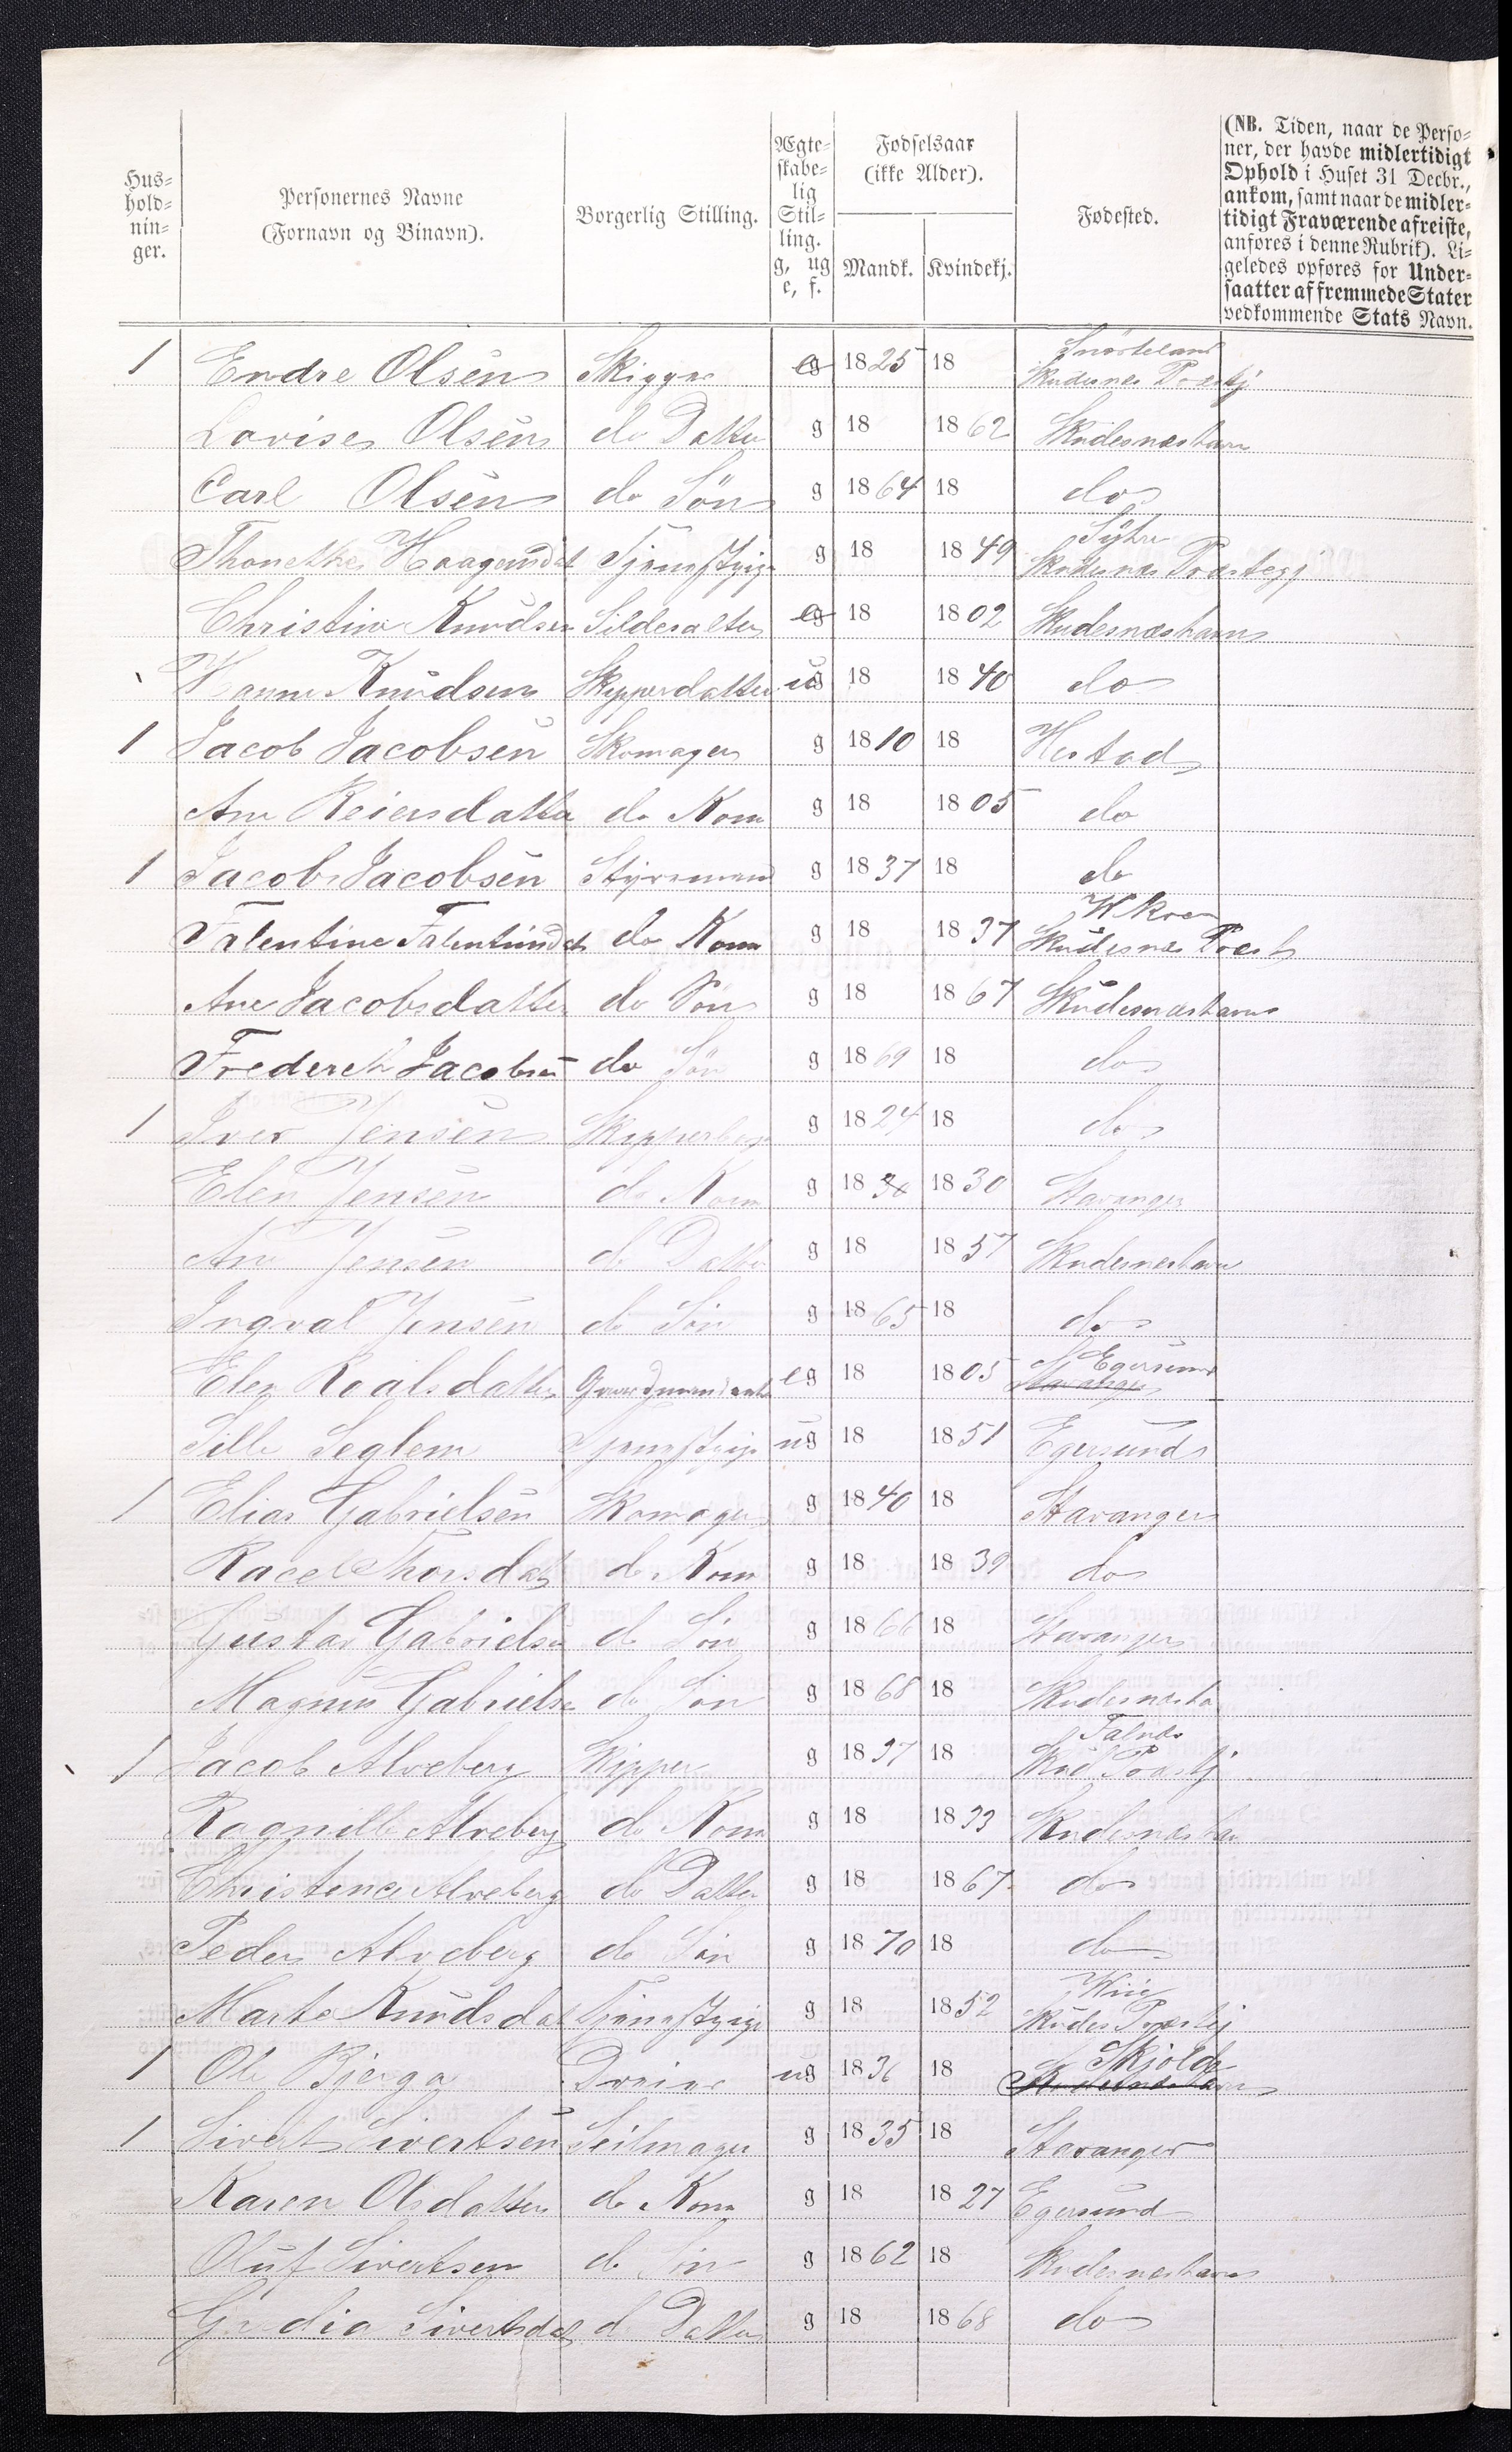 Hus-
hold-
nin-
ger.
Personernes Navne
(Fornavn og Binavn).
Borgerlig Stilling.
Ægte-
skabe-
lig
Stil-
ling.
g, ug
e, f.
Fødselsaar
(ikke Alder).
Mandk. Kvindekj.
Fødested.
(NB. Tiden, naar de Perso-
ner, der havde midlertidigt
Ophold i Huset 31 Decbr.,
ankom, samt naar de midler-
tidigt Fraværende afreiste,
anføres i denne Rubrik). Li-
geledes opføres for Under-
saatter af fremmede Stater
vedkommende Stats Navn.
1 Endre Olsen eg 1825 18 Skudesnes Præstgj
Lovise Olsen do Datter g 18 1862 Skudesneshavn
Carl Olsen do Søn g 1864 18 do
Thonethe Haagensdat Tjenestpige g 18 1849 Syhre Skudesnes Præstegj
Christine Knudsen Sildesalter eg 18 1802 Skudesneshavn
Hanne Knudsen Skipperdatter ug 18 1840 do
1 Jacob Jacobsen Skomager g 1810 18
Ane Reiersdatter do Kone g 18 1805 do
1 Jacob Jacobsen Styremand g 1837 18 do
Falentine Falentinsdat do Kone g 18 1837 Skudesnes Præst
Ane Jacobsdatter do Søn g 18 1867 Skudesneshavn
Frederik Jacobsen do Søn g 1869 18 do
1 Iver Jensen g 1824 18 do
Elen Jensen do Kone g 18 30 1830 Stavanger
Ane Jensen do Datter g 18 1857 Skudesneshavn
Ingval Jensen do Søn g 1865 18 do
Elen Roalsdatter eg 18 1805 Egersund Stavanger
Sille Seglem Tjenestpige ug 18 1851 Egersund
1 Elias Gabrielsen Skomager g 1840 18 Stavanger
Racel Thorsdat do Kone g 18 1839 do
Gustav Gabrielsen do Søn g 1866 18 Stavanger
Magnus Gabrielse do Søn g 1868 18 Skudesnesha
1 Jacob Alveberg Skipper g 1837 18 Falnes Skud Præstgj
Ragnille Alveberg do Kone g 18 1833 Skudesneshav
Christence Alveberg do Datter g 18 1867 do
Peder Alveberg do Søn g 1870 18 do
Marte Knudsdat Tjenestpige g 18 1852 Skudes Præstgj
1 Ole Bjerga Dreier ug 1836 18 Skjolde Skudesneshavn
1 Sivert Sivertsen Seilmager g 1835 18 Stavanger
Karen Olsdatter do Kone g 18 1827 Egersund
Oluf Sivertsen do Søn g 1862 18 Skudesneshavn
Sivertsdat do Datter g 18 1868 do